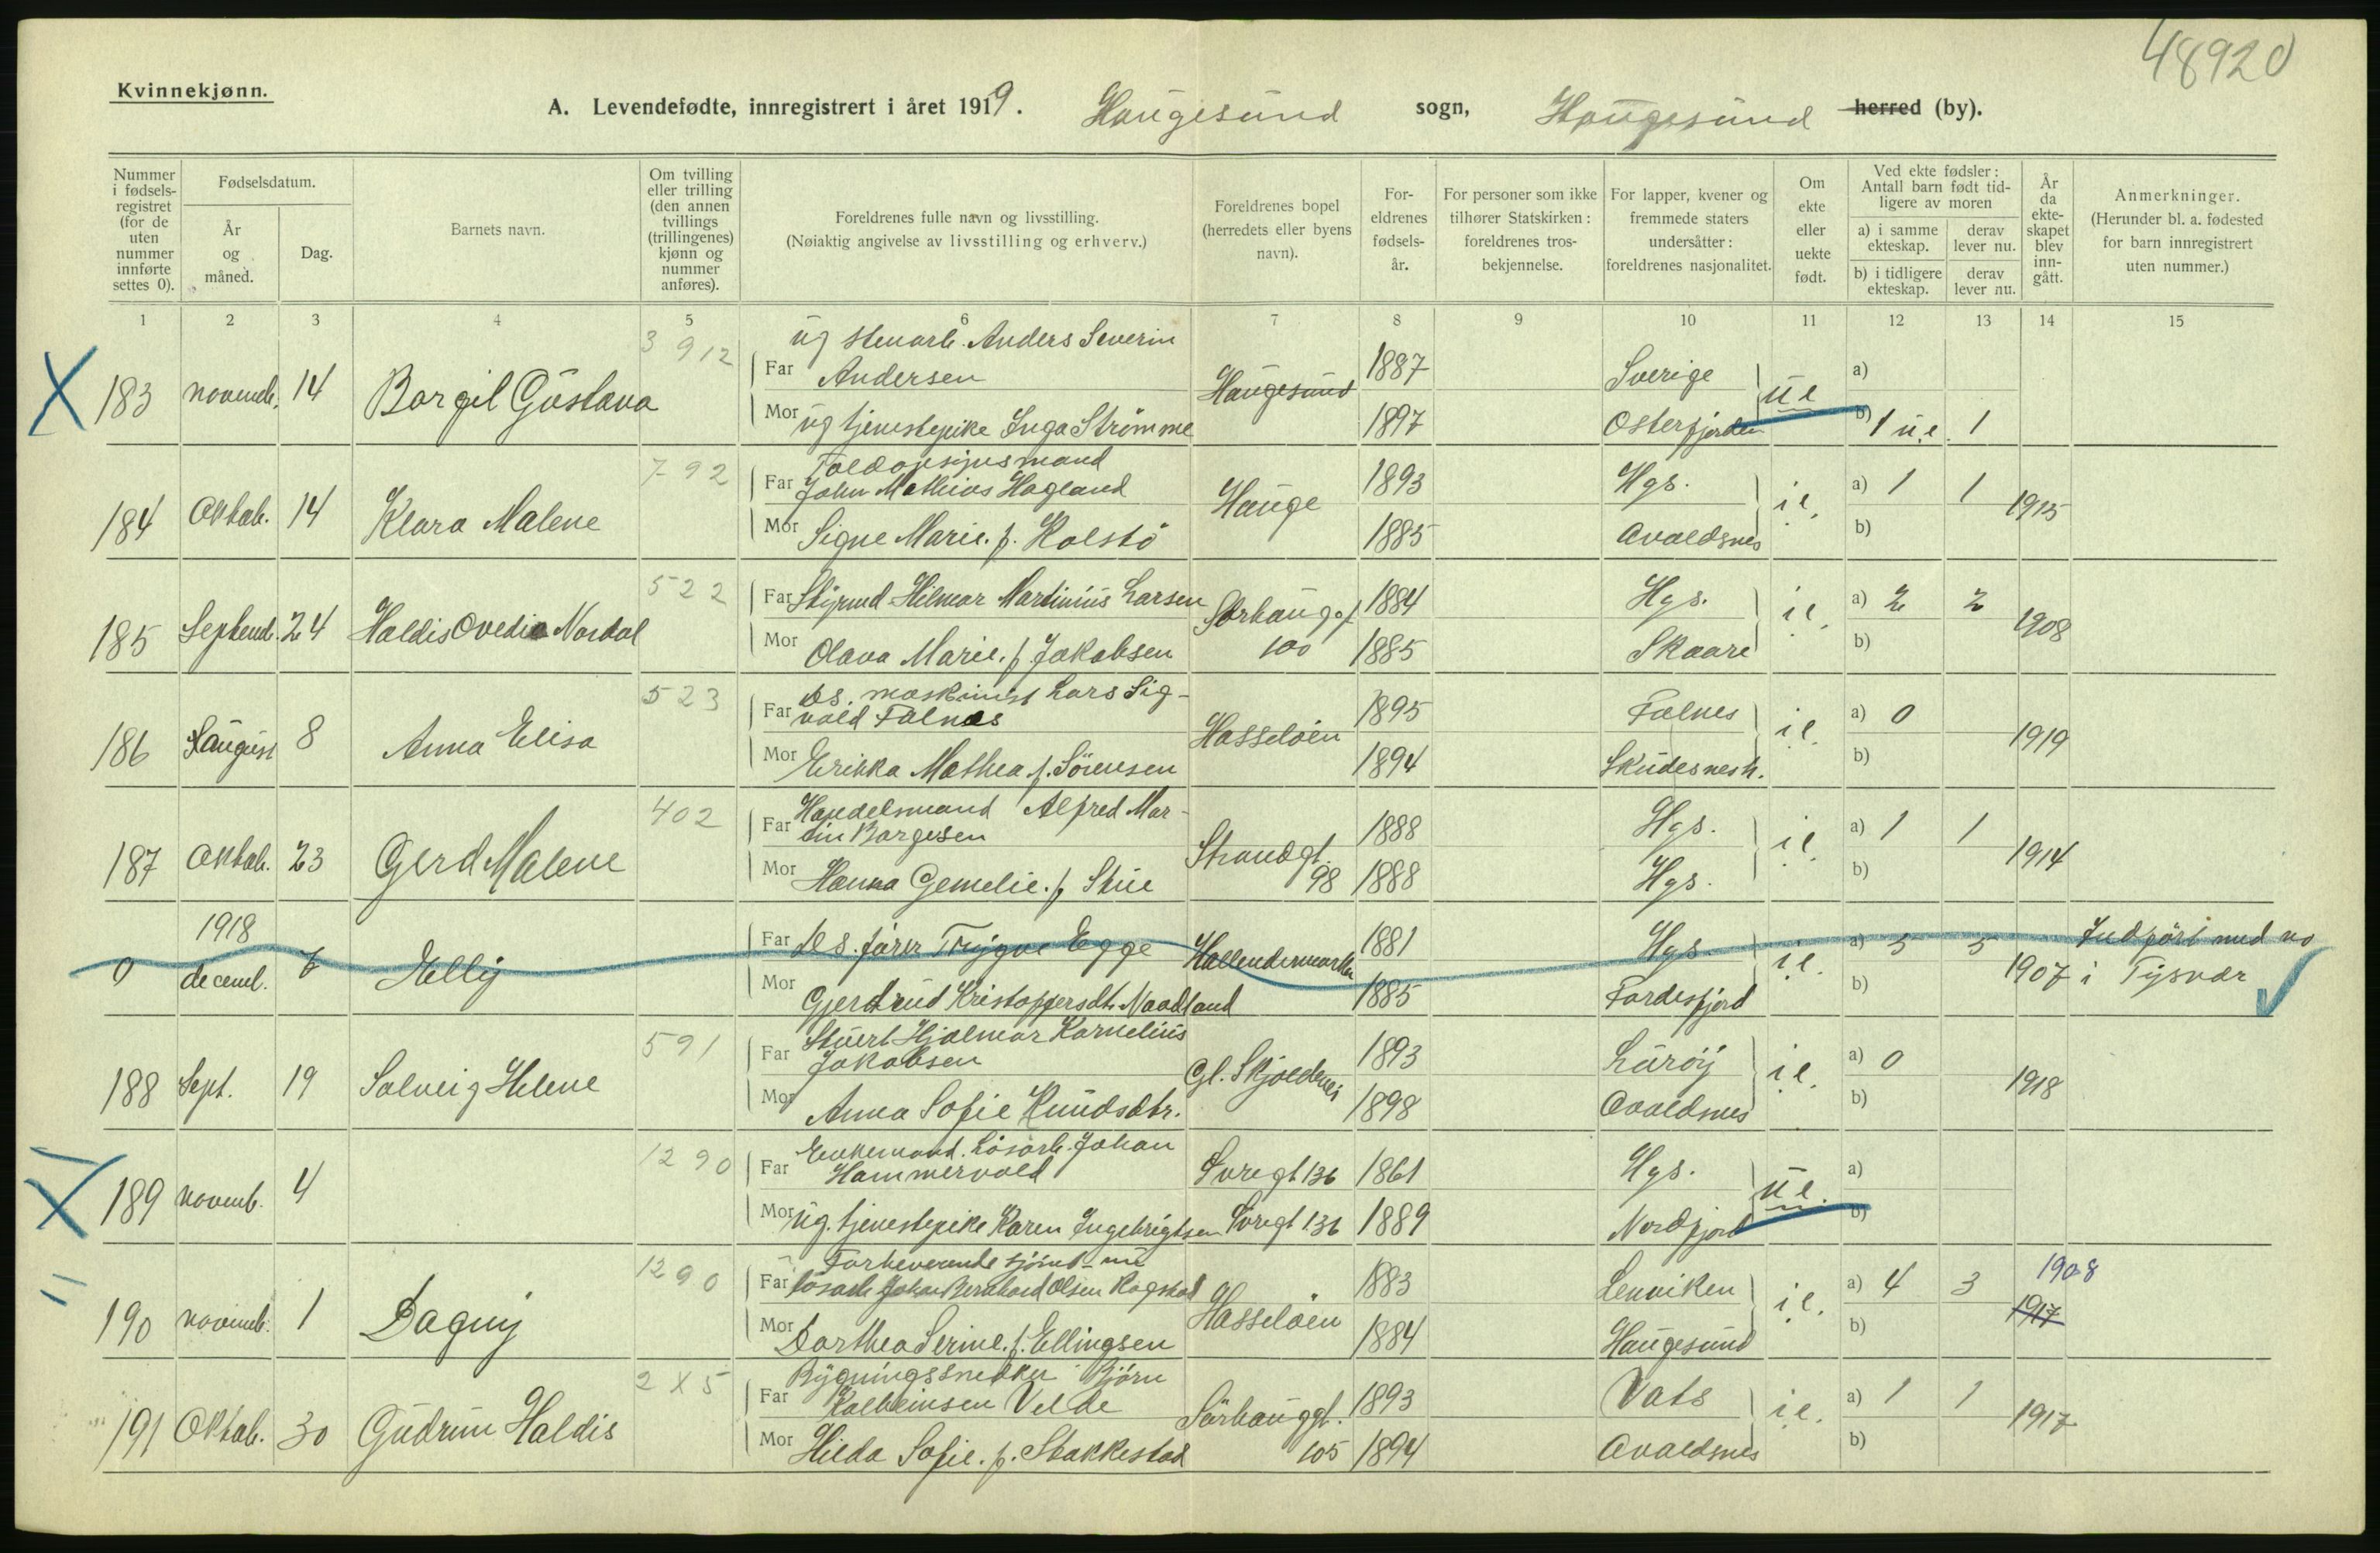 48920
Kvinnekjønn.
A. Levendefødte, innregistrert i året 1919. Haugesund sogn, Haugesund herred (by).
Nummer i fødselsregistret (for de uten nummer innførte settes 0).
Fødselsdatum.
År og måned.
Dag.
Barnets navn.
Om tvilling eller trilling (den annen tvillings (trillingenes) kjønn og nummer anføres).
Foreldrenes fulle navn og livsstilling.
(Nøiaktig angivelse av livsstilling og erhverv.)
Foreldrenes bopel (herredets eller byens navn).
Foreldrenes fødselsår.
For personer som ikke tilhører Statskirken: foreldrenes trosbekjennelse.
For lapper, kvener og fremmede staters undersåtter: foreldrenes nasjonalitet.
Om ekte eller uekte født.
Ved ekte fødsler: Antall barn født tidligere av moren
a) i samme ekteskap.
derav lever nu.
b) i tidligere ekteskap.
derav lever nu.
År da ekteskapet blev inngått.
Anmerkninger.
(Herunder bl. a. fødested for barn innregistrert uten nummer.)
1 2 3 4 5 6 7 8 9 10 11 12 13 14 15
3912 ug stenarb. Anders Severin
183 novemb. 14 Borgil Gustava Far Andersen Haugesund 1887 Sverige u e a)
Mor ug tjenestepike Inga Strømme 1897 Osterfjorden b) 1 u.e. 1
792 Toldopsynsmand
184 Oktob. 14 Klara Malene Far John Mathias Hagland Hauge 1893 Hgs. i e. a) 1 1 1915
Mor Signe Marie. f. Kolstö 1885 Avaldsnes b)
522
185 Septemb. 24 Haldis Ovedia Nordal Far Styrmd Hilmar Martinius Larsen Sørhaugg. 100 1884 Hgs. i e. a) 2 2 1908
Mor Olava Marie. f. Jakobsen 1885 Skaare b)
523 Ds. maskinist Lars Sig-
186 August 8 Anna Elisa Far vald Falnes Hasseløen 1895 Falnes i e. a) 0 1919
Mor Erikka Mathea f. Sörensen 1894 Skudesnesh. b)
402 Handelsmand Alfred Mar-
187 Oktob. 23 Gerd Malene Far tin Børgesen Strandgt. 98 1888 Hgs. i e. a) 1 1 1914
Mor Hanna Gemelie. f. Stue 1888 Hgs. b)
1918
0 decemb. 6 Elly Far Ds. fører Trygve Egge 1881 Hgs. i e. a) 5 5 1907 Indført med no
Mor Gjertrud Kristoffersdt. Naadland 1885 Førdesfjord b) i Tysvær
591 Stuert Hjalmar Kornelius
188 Sept. 19 Solveig Helene Far Jakobsen Gl. Skjoldevei 1893 Lurøy i e. a) 0 1918
Mor Anna Sofie Knudsdtr. 1898 Avaldsnes b)
1290 Enkemand. Løsarb. Johan
189 novemb. 4 Far Hammervold Svregt 136 1861 Hgs. u e. a)
Mor ug. tjenestepike Karen Ingebrigtsen Svregt 136 1889 Nordfjord b)
1290 Forheverende sjömd. nu
190 novemb. 1 Dagny Far løsarb Johan Bernhard Olsen Rogstad Hasseløen 1883 Lenviken i e. a) 4 3 1908 1917
Mor Dorthea Serine. f. Ellingsen 1884 Haugesund b)
2X5 Bygningssnedker Bjørn
191 Oktob. 30 Gudrun Haldis Far Kolbeinsen Velde Sørhauggt. 105 1893 Vats i e. a) 1 1 1917
Mor Hilda Sofie. f. Stakkestad 1894 Avaldsnes b)